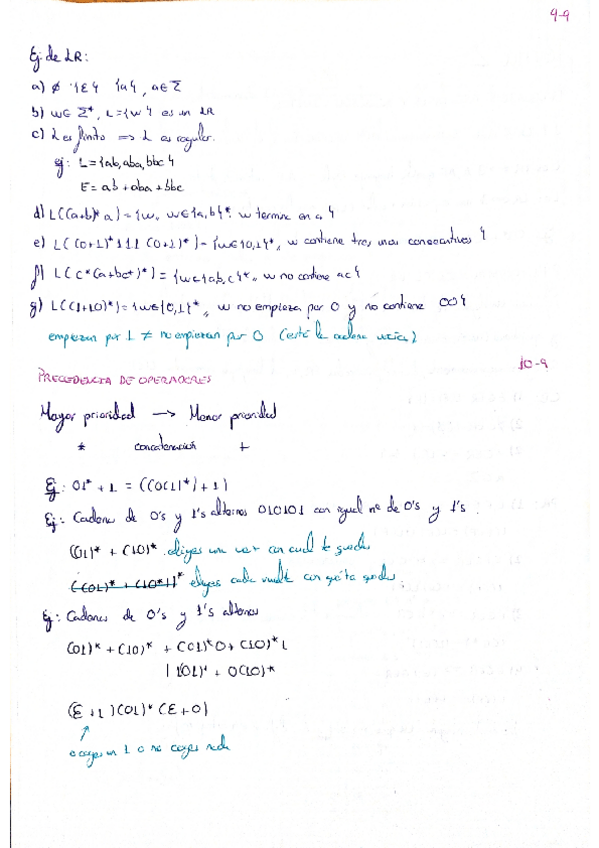 9-9
Ej de LR:
a) ∅ {ε} {a}, a∈Σ
b) w∈Σ*, L={w} es un LR
c) L es finito ⟹ L es regular.
ej: L={ab, aba, bbc}
E= ab+aba+bbc
d) L((a+b)*a)={w, w∈{a,b}*: w termina en a}
e) L((0+1)*111(0+1)*)={w∈{0,1}*, w contiene tres unos consecutivos}
f) L(c*(a+bc*)*)={w∈{a,b,c}*, w no contiene ac}
g) L((1+10)*)={w∈{0,1}*, w no empieza por 0 y no contiene 00}
empiezan por 1 ≠ no empiezan por 0 (está la cadena vacía)
10-9
PRECEDENCIA DE OPERADORES
Mayor prioridad → Menor prioridad
* concatenación +
Ej: 01* + 1 = ((0(1)*)+1)
Ej: Cadena de 0's y 1's alternos 010101 con igual nº de 0's y 1's
(01)* + (10)* eliges una vez con cual te quedas
((01)* + (10*))* eliges cada vuelta con qué te quedas
Ej: Cadenas de 0's y 1's alternos
(01)* + (10)* + (01)*0 + (10)*1
1(01)* + 0(10)*
(ε+1)(01)*(ε+0)
o coges un 1 o no coges nada